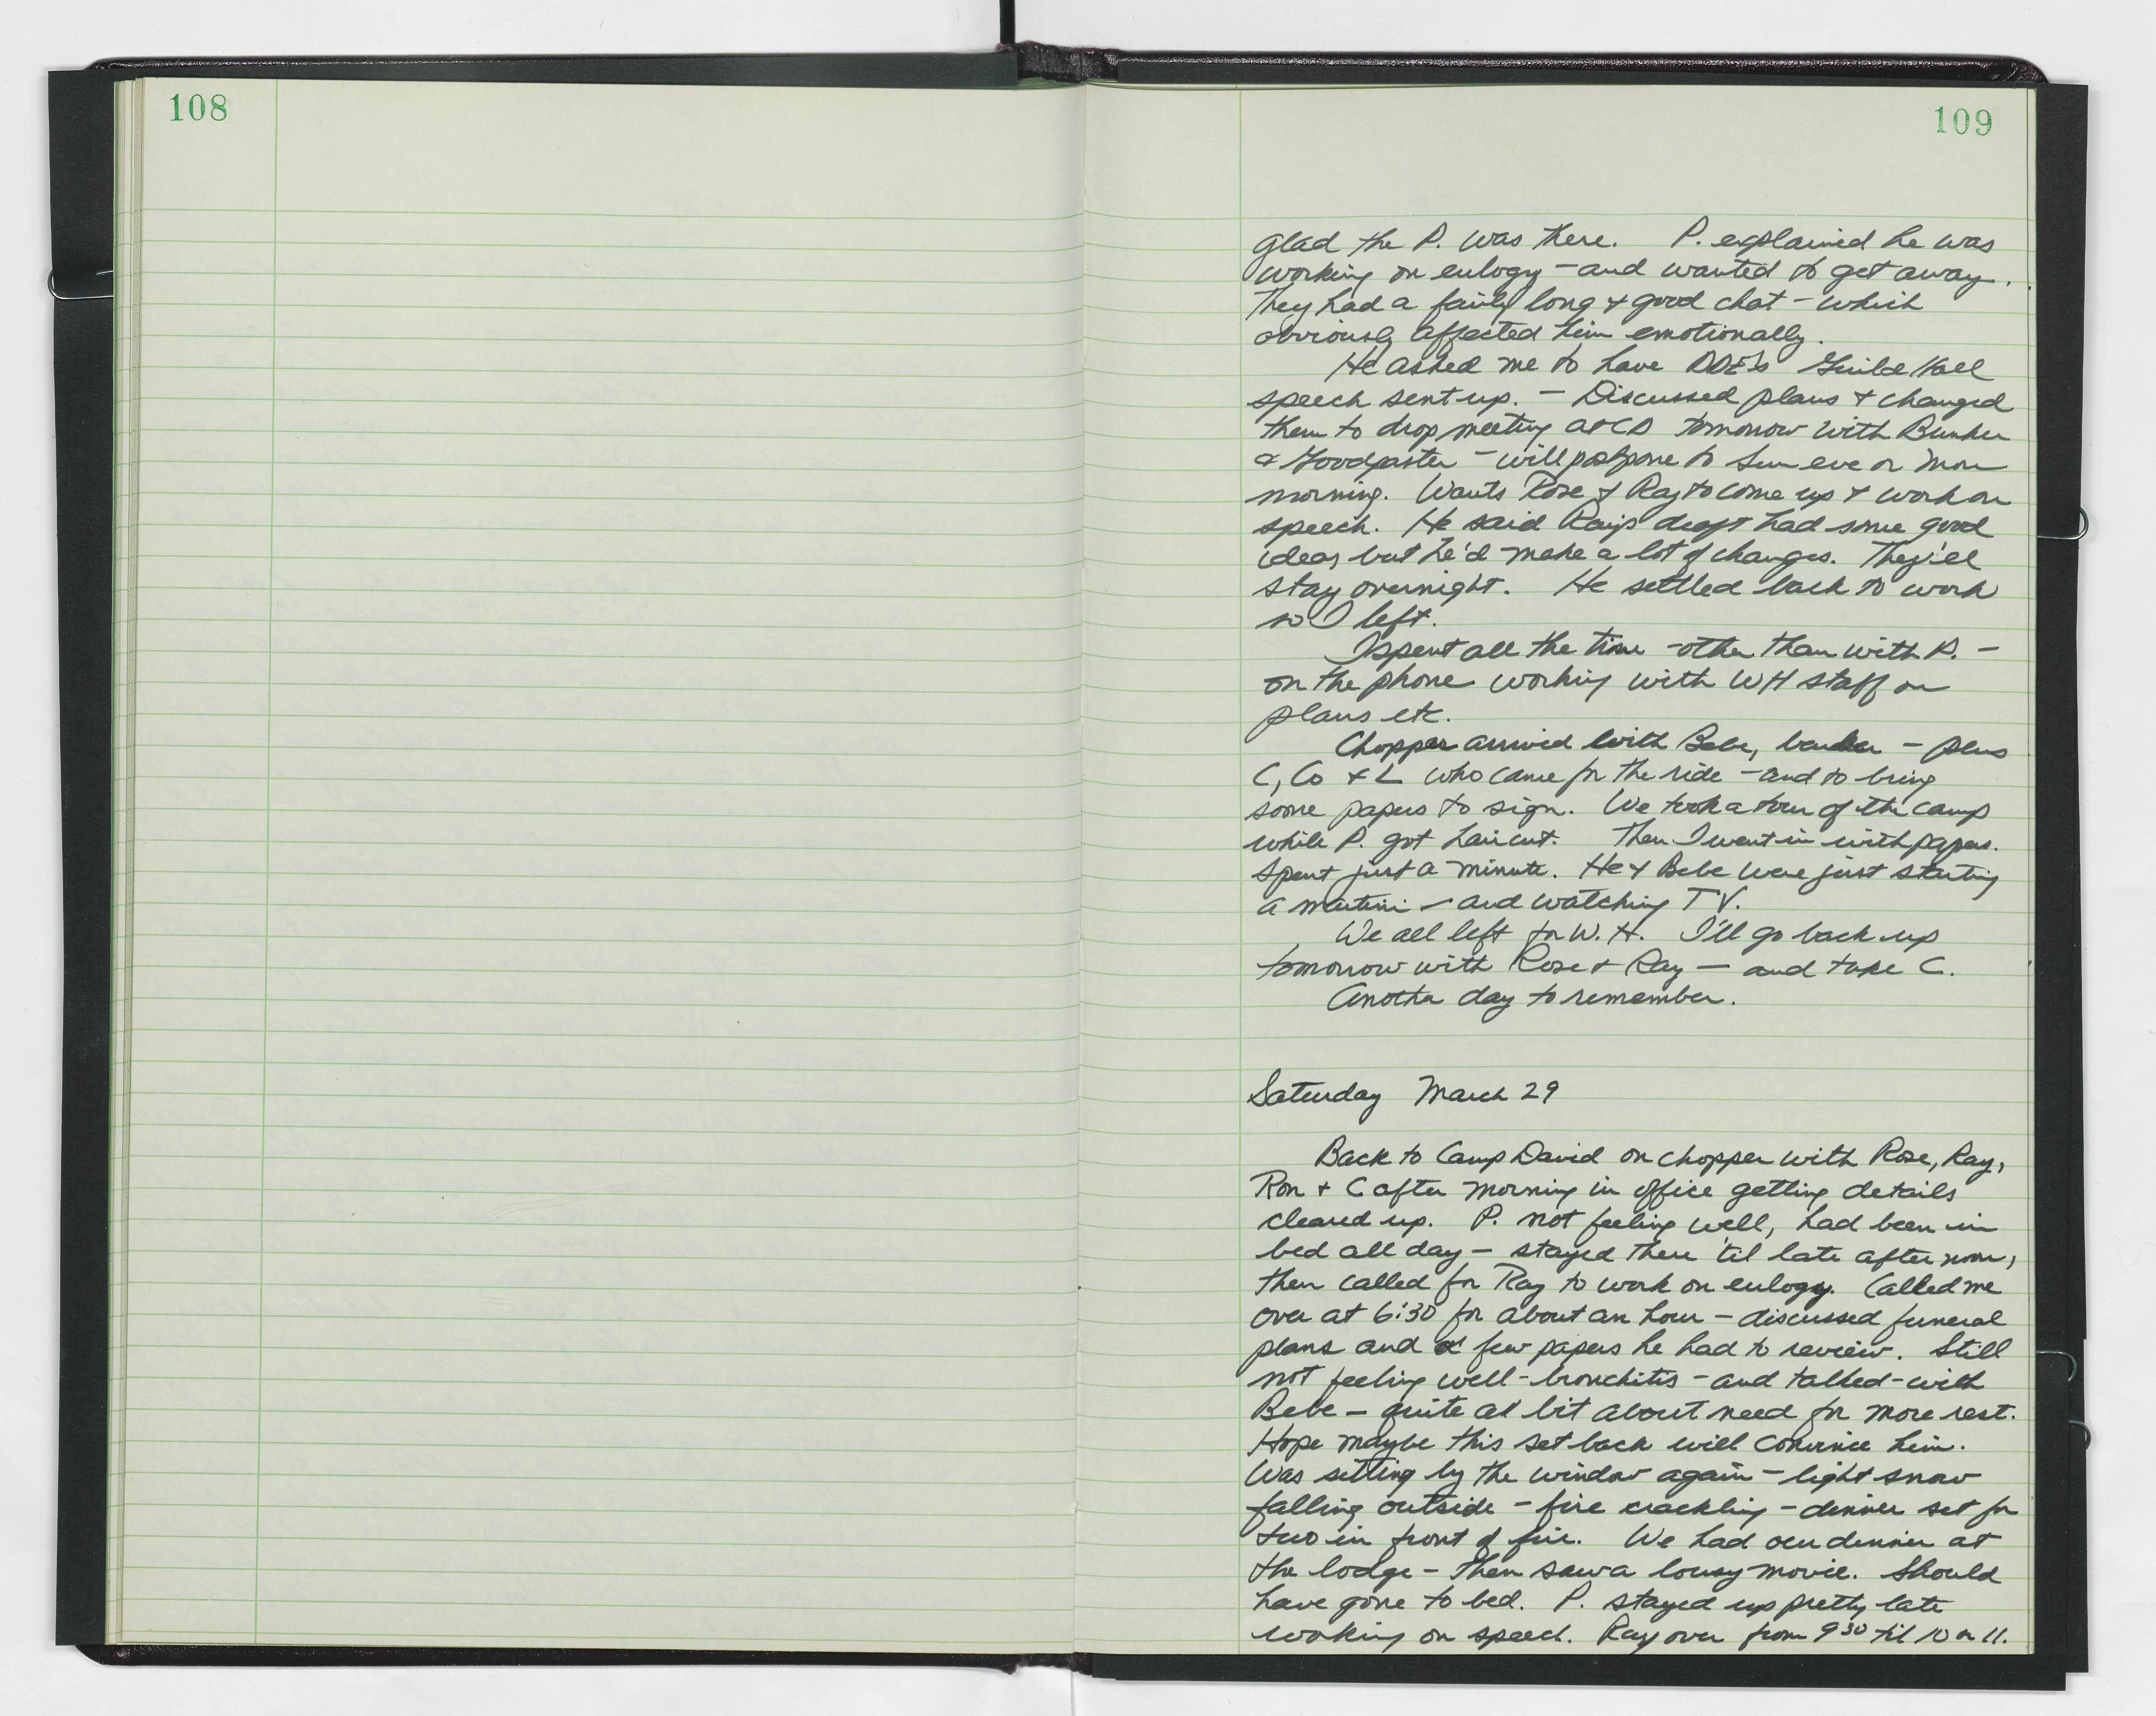 108
109
glad the P. was there. P. explained he was
working on eulogy – and wanted to get away.
They had a fairly long & good chat – which
obviously affected him emotionally.
He asked me to have DDE's Guild Hall
speech sent up. – Discussed plans & changed
them to drop meeting at CD tomorrow with Bunker
& Goodpaster – will postpone to Sun eve or Mon
morning. Wants Rose & Ray to come up & work on
speech. He said Ray's draft had some good
ideas but he'd make a lot of changes. They'll
stay overnight. He settled back to work
so I left.
I spent all the time – other than with P. –
on the phone working with WH staff on
plans etc.
Chopper arrived with Bebe, barber – plus
C, Co & L who came for the ride – and to bring
some papers to sign. We took a tour of the camp
while P. got haircut. Then I went in with papers.
Spent just a minute. He & Bebe were just starting
a martini – and watching TV.
We all left for W.H. I'll go back up
tomorrow with Rose & Ray – and take C.
Another day to remember.
Saturday March 29
Back to Camp David on chopper with Rose, Ray,
Ron & C after morning in office getting details
cleared up. P. not feeling well, had been in
bed all day – stayed there 'til late afternoon,
then called for Ray to work on eulogy. Called me
over at 6:30 for about an hour – discussed funeral
plans and a few papers he had to review. Still
not feeling well – bronchitis – and talked – with
Bebe – quite a bit about need for more rest.
Hope maybe this set back will convince him.
Was sitting by the window again – light snow
falling outside – fire crackling – dinner set for
two in front of fire. We had our dinner at
the lodge – then saw a lousy movie. Should
have gone to bed. P. stayed up pretty late
working on speech. Ray over from 9 30 til 10 or 11.